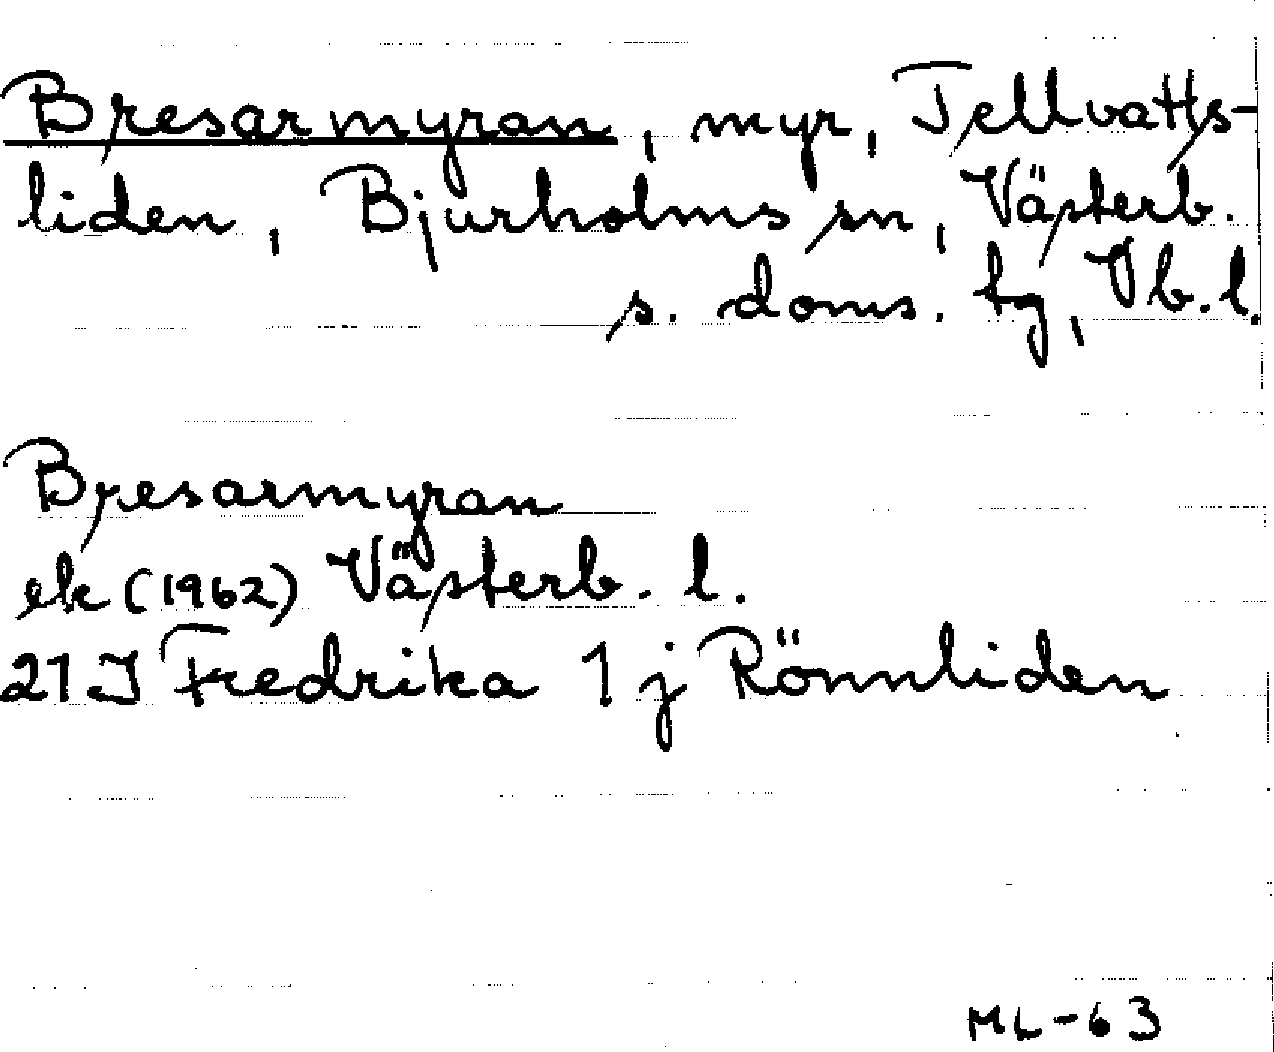 Bresarmyran, myr, Tellvatts-
liden, Bjurholms sn, Västerb.
s. doms. tg, Vb. l.
Bresarmyran
ek (1962) Västerb. l.
21 J Fredrika 1 j Rönnliden
ML-63